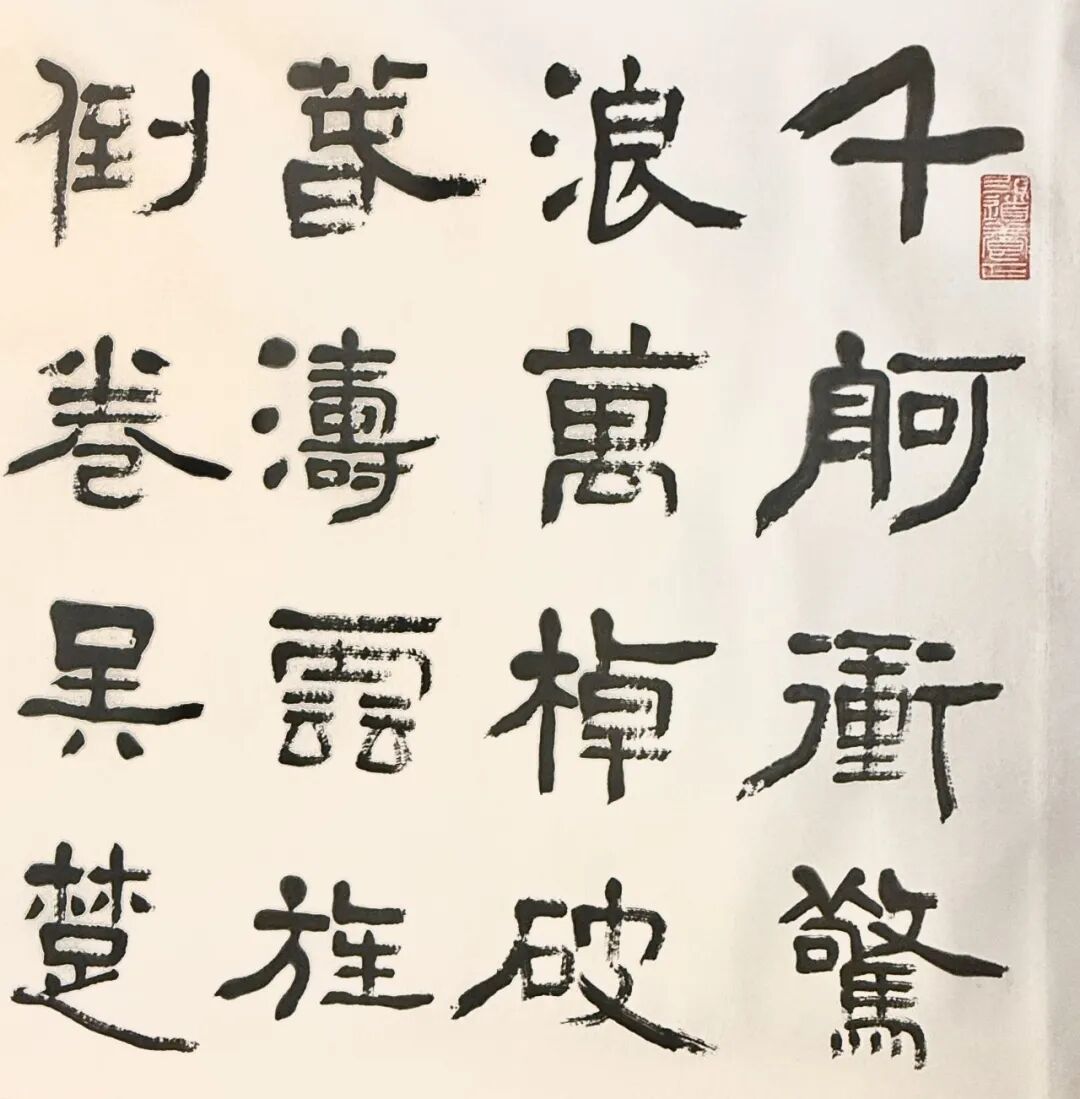 千舸衝驚
浪萬棹破
暮濤雲旌
倒卷吳楚